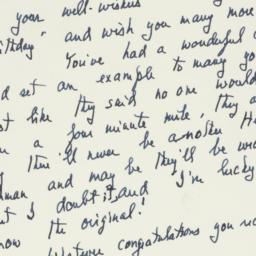 your well-wishes
birthday" and wish you many more
You've had a wonderful
set an example to many
They said no one would
like a four minute mile, they
There'll never be another
and may be they'll be
doubt it, and I'm lucky
I
the original!
congratulations you